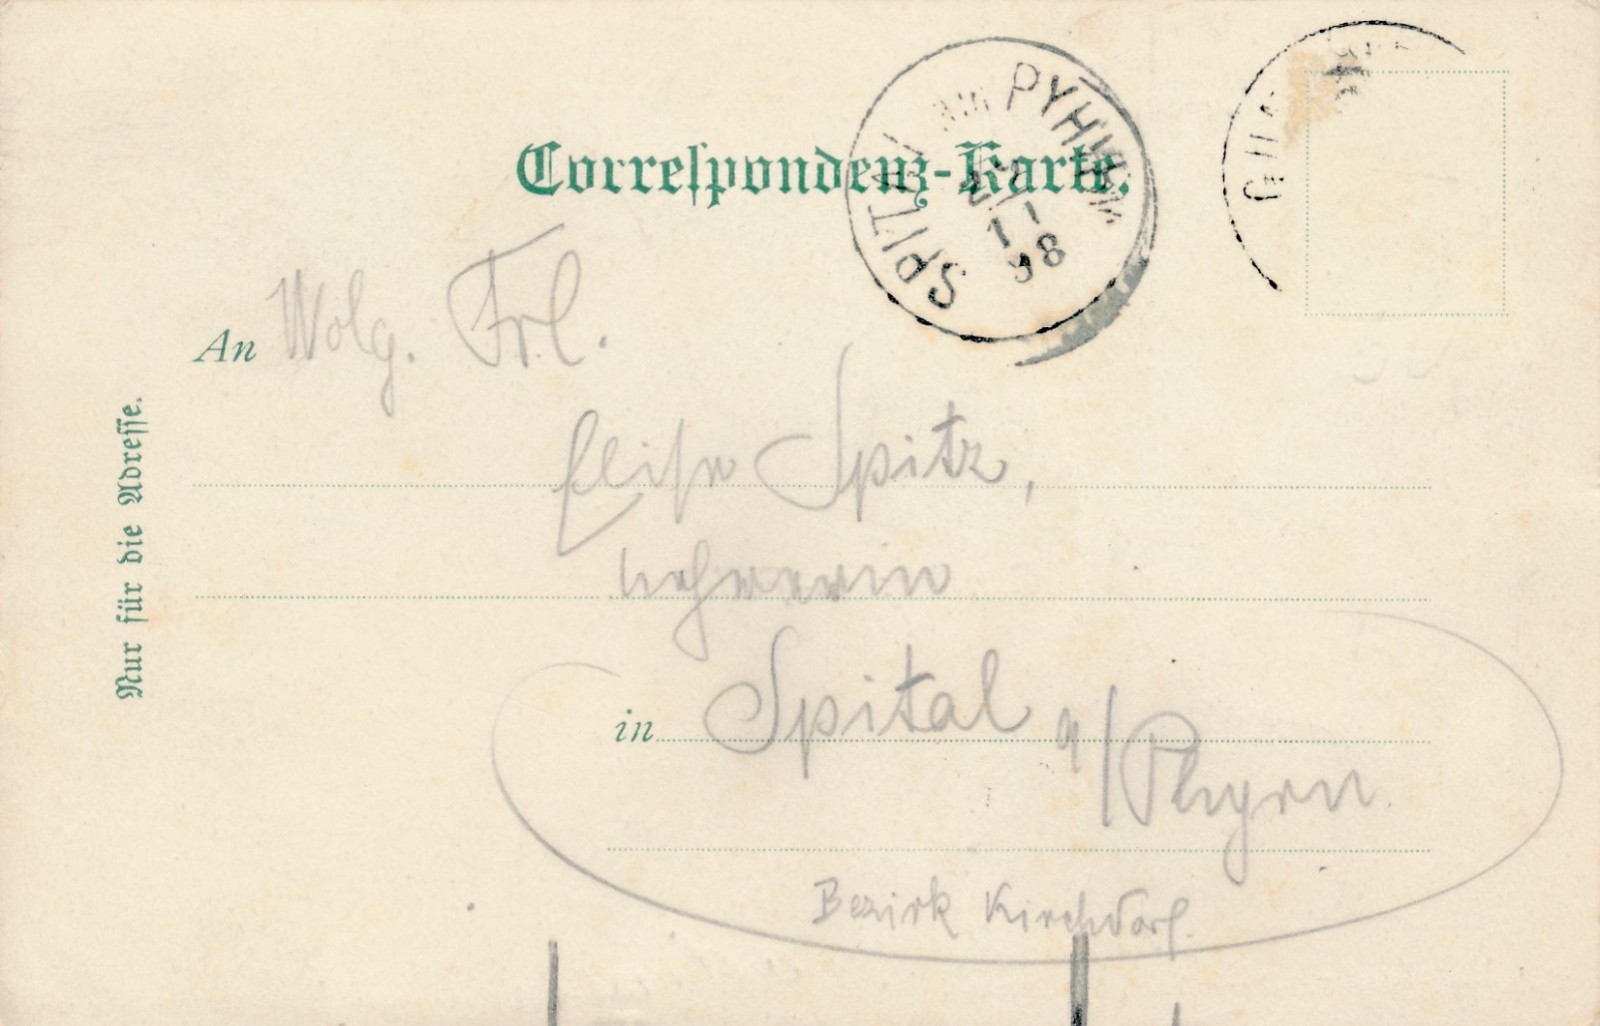 Correspondenz-Karte.
SPITAL am PYHRN
11
98
An Wolg. Frl.
Elise Spitz,
Lehrerin
in Spital a/Phyrn
Bezirk Kirchdorf.
Nur für die Adresse.